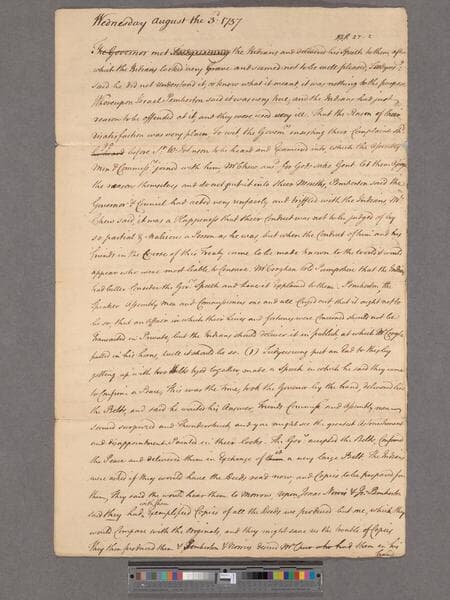 Wednesday August the 3d. 1757
The Governor met the Indians and delivered his Speech to them, after
which the Indians looked very Grave and seemed not to be well pleased,
said he did not understand it, or know what it meant, it was nothing to the purpose
Whereupon Israel Pemberton said it was very true, and the Indians had just
reason to be offended at it, and they were used very ill. That the Reason of their
dissatisfaction was very plain To wit the Govern. refusing their Complaints to
before Sr. Wm. Johnson to be heard and Examined into which the Assembly
Men & Commissrs. joined with him, Mr Chew ansd. for Gods sake Gent. let them give
the reasons themselves and do not put it into their Mouths, Pemberton said the
Governor & Council had acted very unfairly and triffled with the Indians Mr.
Chew said, it was a Happiness that their Conduct was not to be judged of by
so partial & Malicious a Person as he was, but when the Conduct of him and his
friends in the Course of this Treaty came to be made known to the world it would
appear who were most liable to Censure. Mr Croghan told that the Indians
had better Consider the Govrs. Speech and have it Explained to them. Pemberton, the
Speaker Assembly Men and Commissioners one and all Cryed out that it ought not to
be so, that an affair in which their lives and fortunes were Concerned should not be
transacted in Private, but the Indians should deliver it in publick at which Mr Croghn.
said it should be so. (1) put an End to this by
getting up with two Belts tyed together, made a Speech in which he said they came
to Confirm a Peace, This was the time, took the Governor by the hand, delivered him
the Belts, and said he waited his Answer. Friends Commissrs. and Assembly men
seemed surprized and Thunderstruck and you might see the greatest Astonishment
and disappointment Painted in their looks. The Govr. accepted the Belts, Confirmd
the Peace and delivered them in Exchange of them a very large Belt. The Indians
were asked if they would have the Deeds read now, and Copies to be prepared for
them, They said they would hear them to Morrow upon Isaac Norris & Js. Pemberton
said they had with them Exemplifyed Copies of all the Deeds we produced but one, which they
would Compare with the Originals, and they might save us the trouble of Copies
They then produced them & Pemberton & Norris desired Mr Chew who had them in his